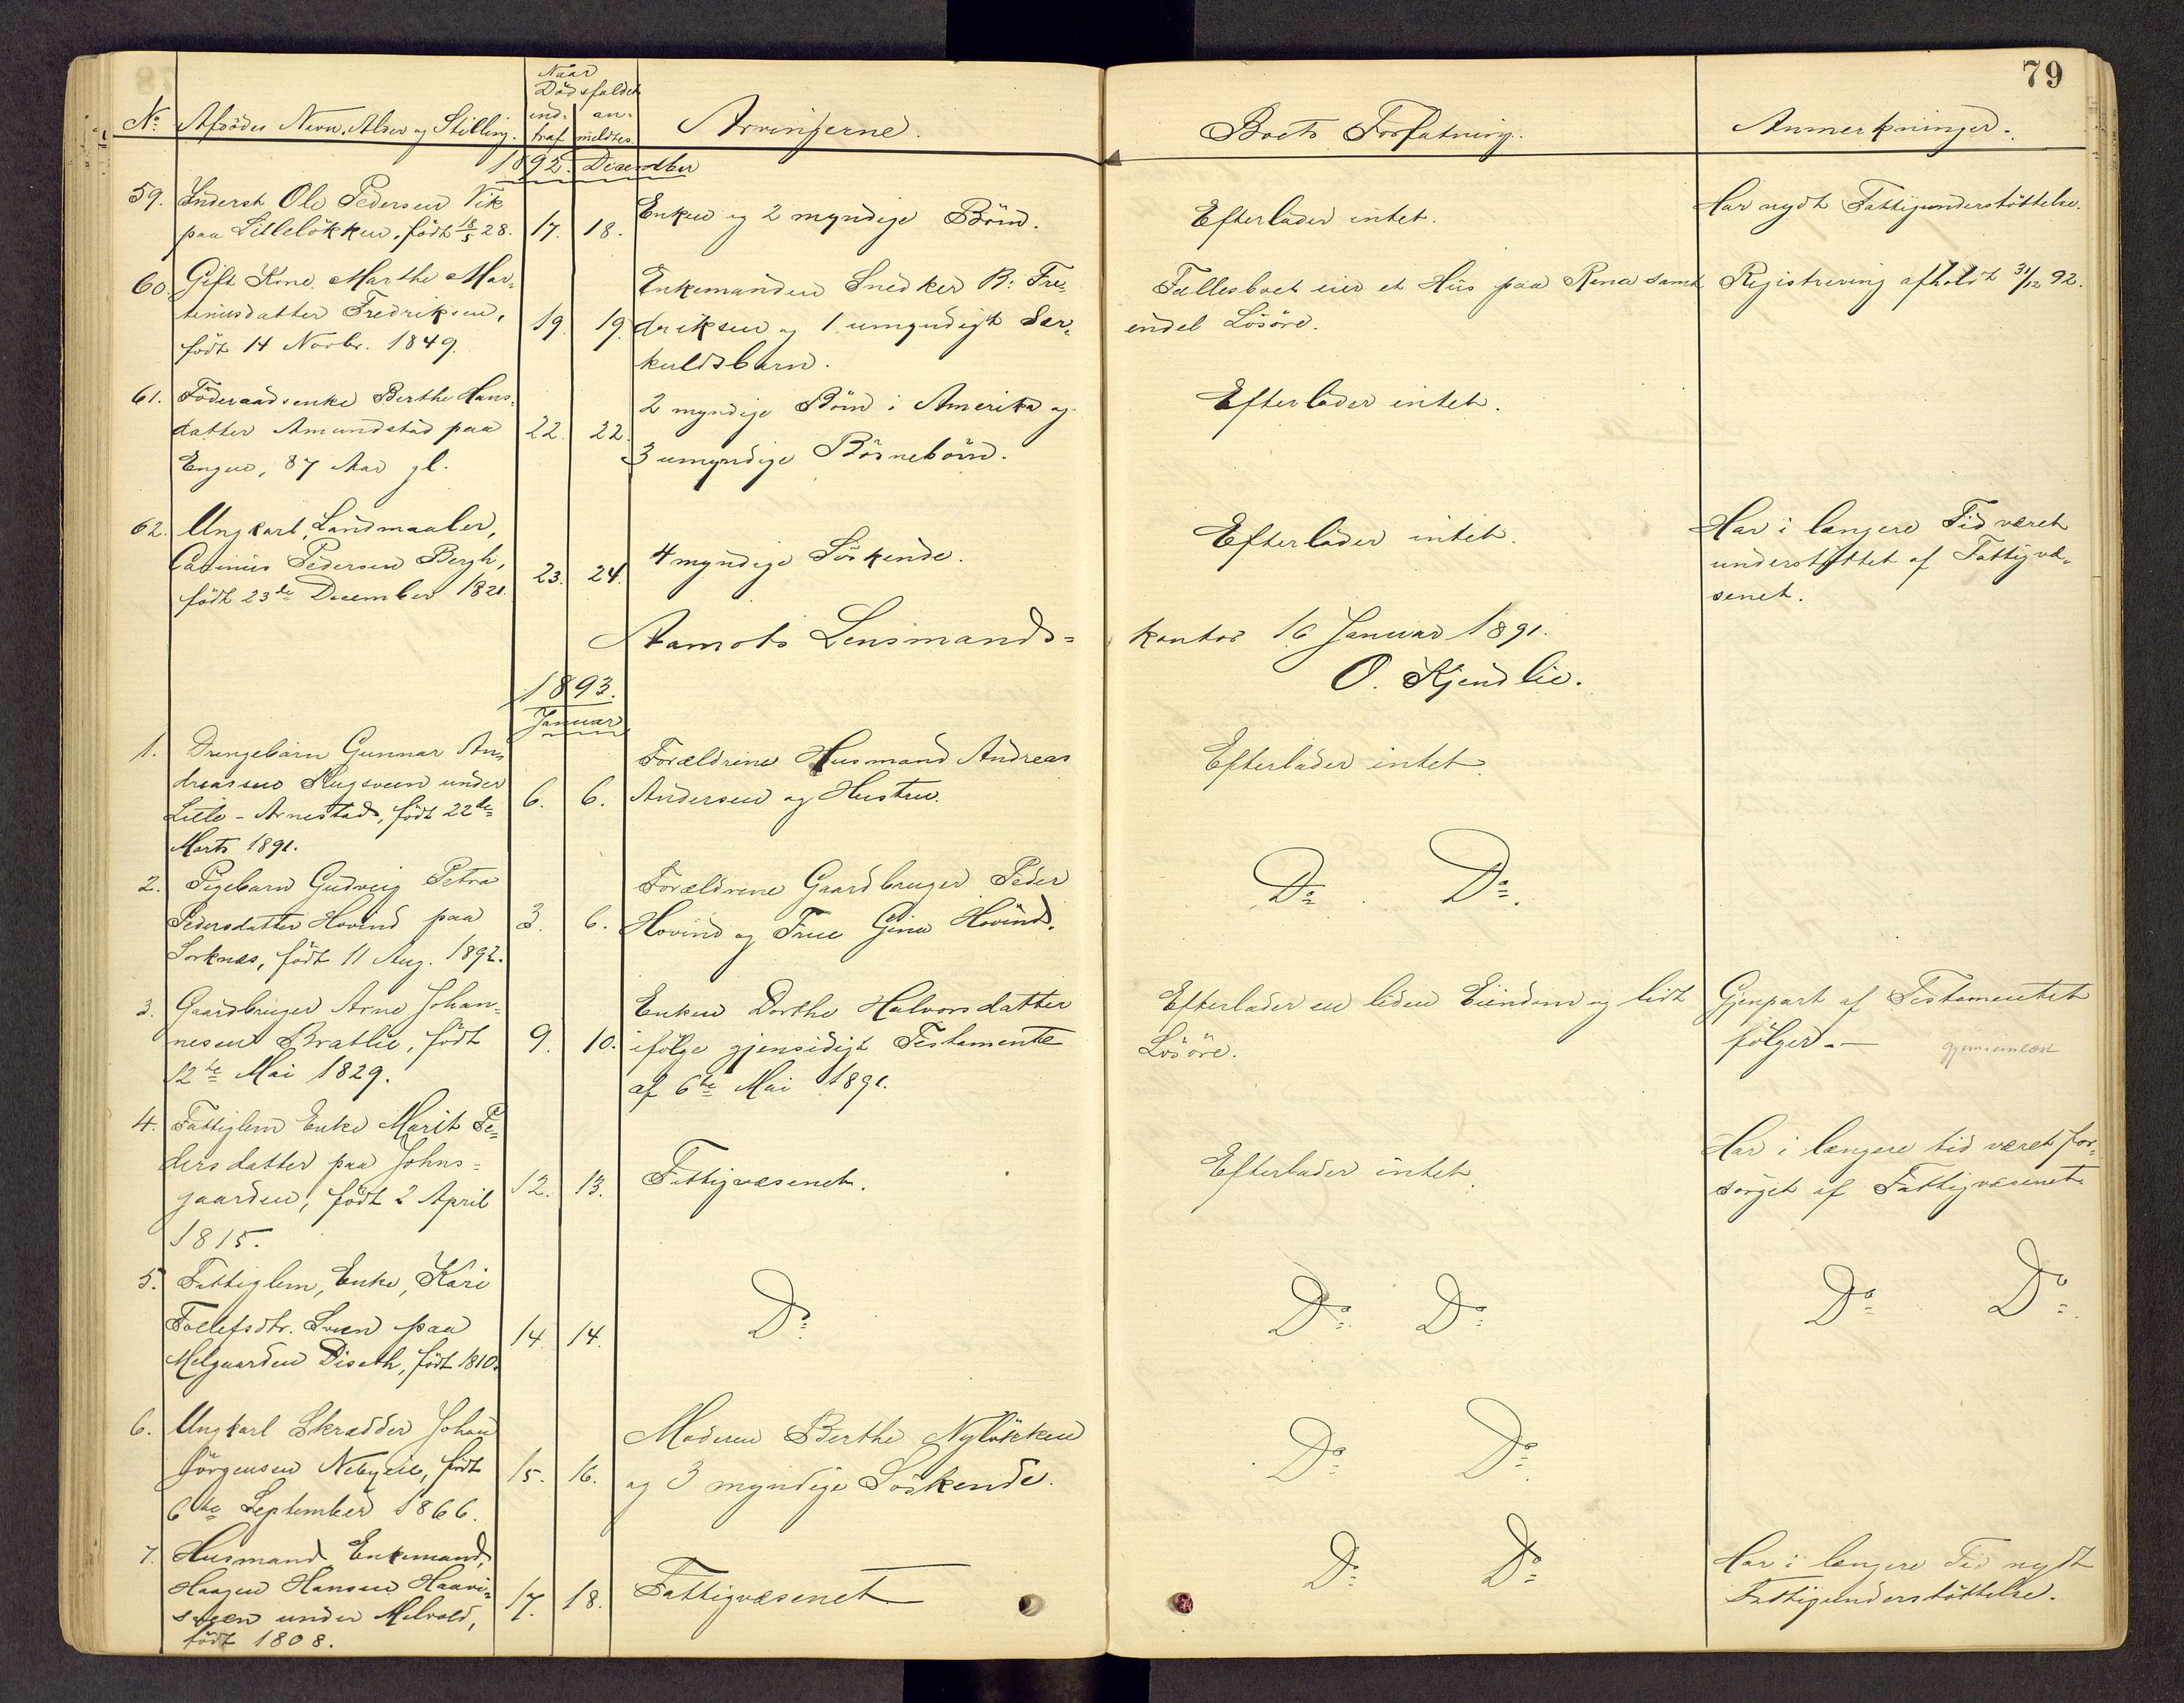 79
Naar
Dödsfaldet
No Afdødes Navn, Alder og Stilling. ind- traf an- meldtes Arvingerne. Boets Forfatning. Anmerkninger.
1892. December
59. Inderst Ole Pedersen Vik
paa Lilleløkken, født 18/5 28. 17. 18. Enken og 2 myndige Børn. Efterlader intet. Har nydt Fattigunderstøttelse.
60. Gift Kone Marthe Mar-
tinusdatter Fredriksen,
født 14 Novbr. 1849. 19. 19. Enkemanden Snedker B. Fre-
driksen og 1 umyndigt Sær-
kuldsbarn. Fællesboet eier et Hus paa Rena samt
endel Løsøre. Registrering afholdt 31/12 92.
61. Føderaadsenke Berthe Hans-
datter Amundstad paa
Engen, 87 Aar gl. 22. 22. 2 myndige Børn i Amerika og
3 umyndige Børnebørn. Efterlader intet.
62. Ungkarl, Landmaaler,
Casinus Pedersen Bergh,
født 23de December 1821. 23. 24. 4 myndige Søskende. Efterlader intet. Har i længere Tid været
understøttet af Fattigvæ-
senet.
Aamots Lensmands-
kontor 16 Januar 1891.
O. Kjendlie.
1893.
Januar
1. Drengebarn Gunnar An-
dreassen under
Lille-Arnestad, født 22de
Marts 1891. 6. 6. Forældrene Husmand Andreas
Andersen og Hustru. Efterlader intet.
2. Pigebarn Gudveig Petra
Pedersdatter Hovind paa
Sorknæs, født 11 Aug. 1892. 3. 6. Forældrene Gaardbruger Peder
Hovind og Frue Gina Hovind. Do Do
3. Gaardbruger Arne Johan-
nesen Bratlie, født
12te Mai 1829. 9. 10. Enken Dorthe Halvorsdatter
ifølge gjensidigt Testamente
af 6te Mai 1891. Efterlader en liden Eiendom og lidt
Løsøre. Gjenpart af Testamentet
følger.- gjennemlæst
4. Fattiglem Enke Marit Pe-
dersdatter paa Johns-
gaarden, født 2 April
1815. 12. 13. Fattigvæsenet. Efterlader intet. Har i længere tid været for-
sørget af Fattigvæsenet.
5. Fattiglem, Enke, Kari
Tollefsdtr. Sveen paa
Melgaarden Diseth, født 1810. 14. 14. Do Do Do Do Do
6. Ungkarl Skrædder Johan
Jörgensen født
6te September 1866. 15. 16. Moderen Berthe Nyløkken
og 3 myndige Søskende. Do Do
7. Husmand, Enkemand,
Haagen Hansen Haavi-
sveen under Melvold,
født 1808. 17. 18. Fattigvæsenet Do Do Har i længere Tid nydt
Fattigunderstøttelse.